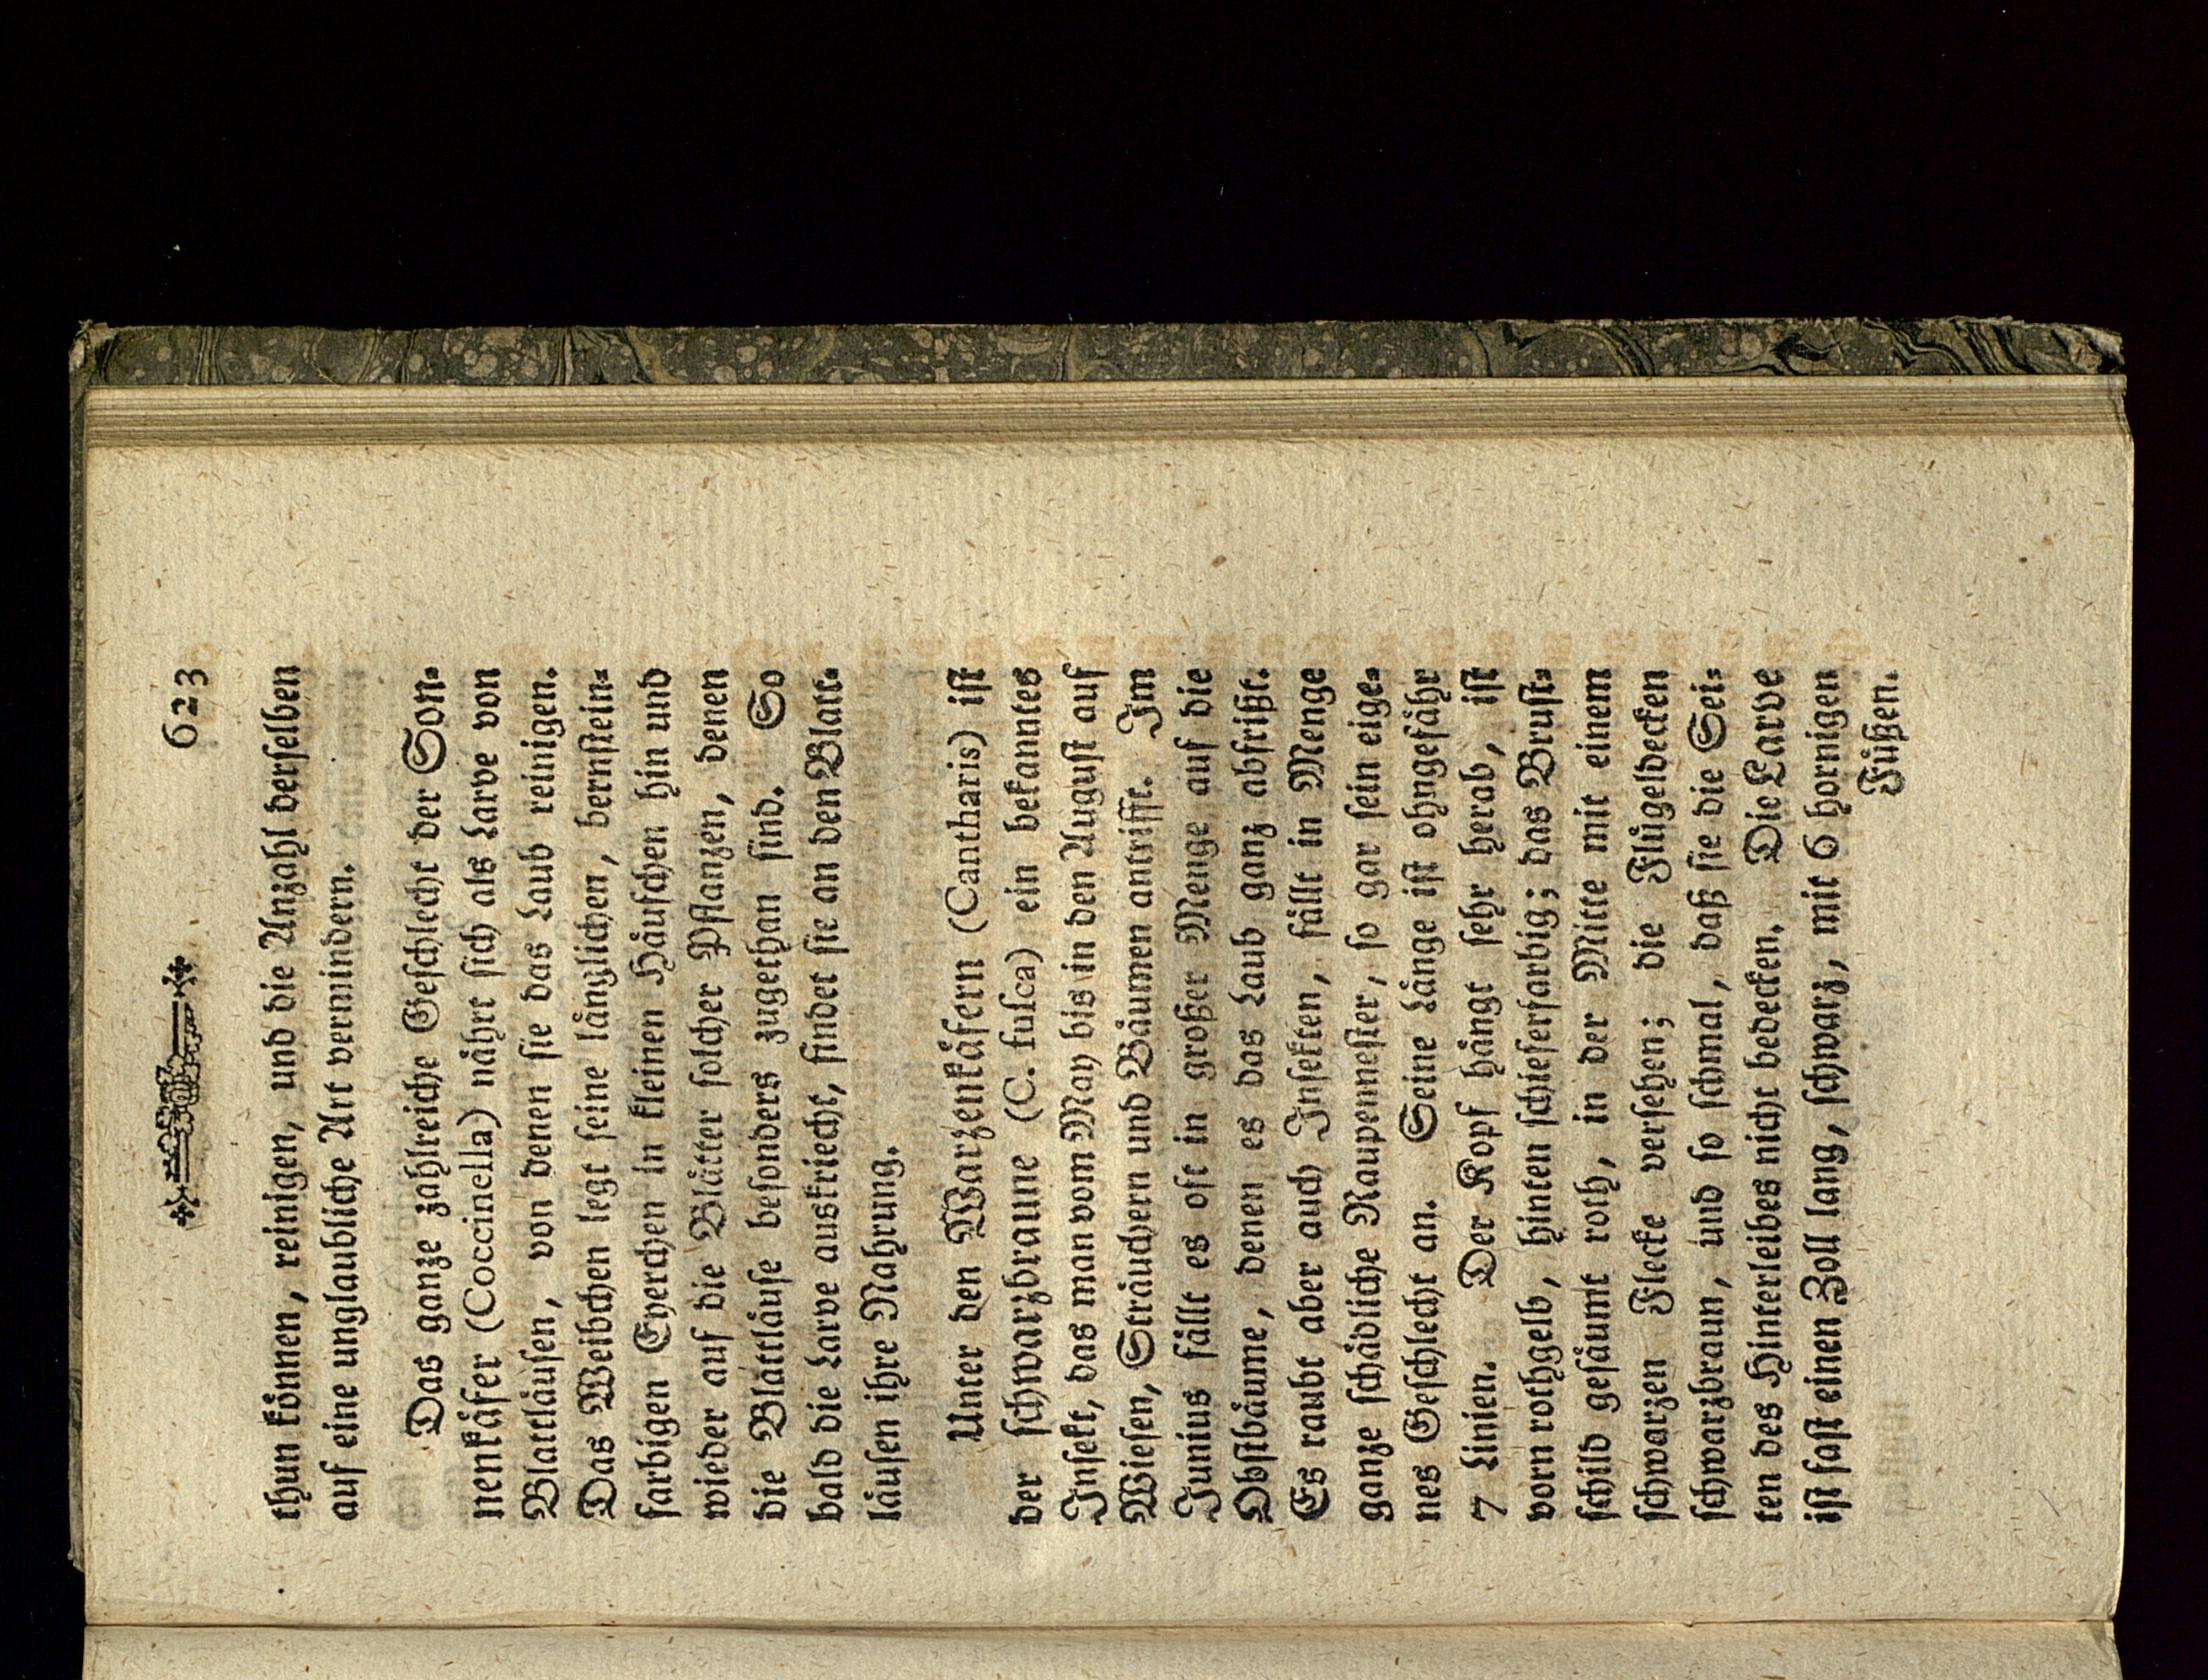 623
thun können, reinigen, und die Anzahl derſelben
auf eine unglaubliche Art vermindern.
Das ganze zahlreiche Geſchlecht der Son⸗
nenkåfer (Coccinella) nåhrt ſich als Larve von
Blattlåuſen, von denen ſie das Laub reinigen.
Das Weibchen legt ſeine långlichen, bernſtein⸗
farbigen Eyerchen in kleinen Håufchen hin und
wieder auf die Blåtter ſolcher Pflanzen, denen
die Blattlåuſe beſonders zugethan ſind. So
bald die Larve auskriecht, findet ſie an den Blatt⸗
låuſen ihre Nahrung.
Unter den Warzenkåfern (Cantharis) iſt
der ſchwarzbraune (C. fuſca) ein bekanntes
Inſekt, das man vom May bis in den Auguſt auf
Wieſen, Stråuchern und Båumen antrifft. Im
Junius fållt es oft in großer Menge auf die
Obſtbåume, denen es das Laub ganz abfrißt.
Es raubt aber auch Inſekten, fållt in Menge
ganze ſchådliche Raupenneſter, ſo gar ſein eige⸗
nes Geſchlecht an. Seine Långe iſt ohngefåhr
7 Linien. Der Kopf hångt ſehr herab, iſt
vorn rothgelb, hinten ſchieferfarbig; das Bruſt⸗
ſchild geſåumt roth, in der Mitte mit einem
ſchwarzen Flecke verſehen; die Flůgeldecken
ſchwarzbraun, und ſo ſchmal, daß ſie die Sei⸗
ten des Hinterleibes nicht bedecken. Die Larve
iſt faſt einen Zoll lang, ſchwarz, mit 6 hornigen
Fůßen.